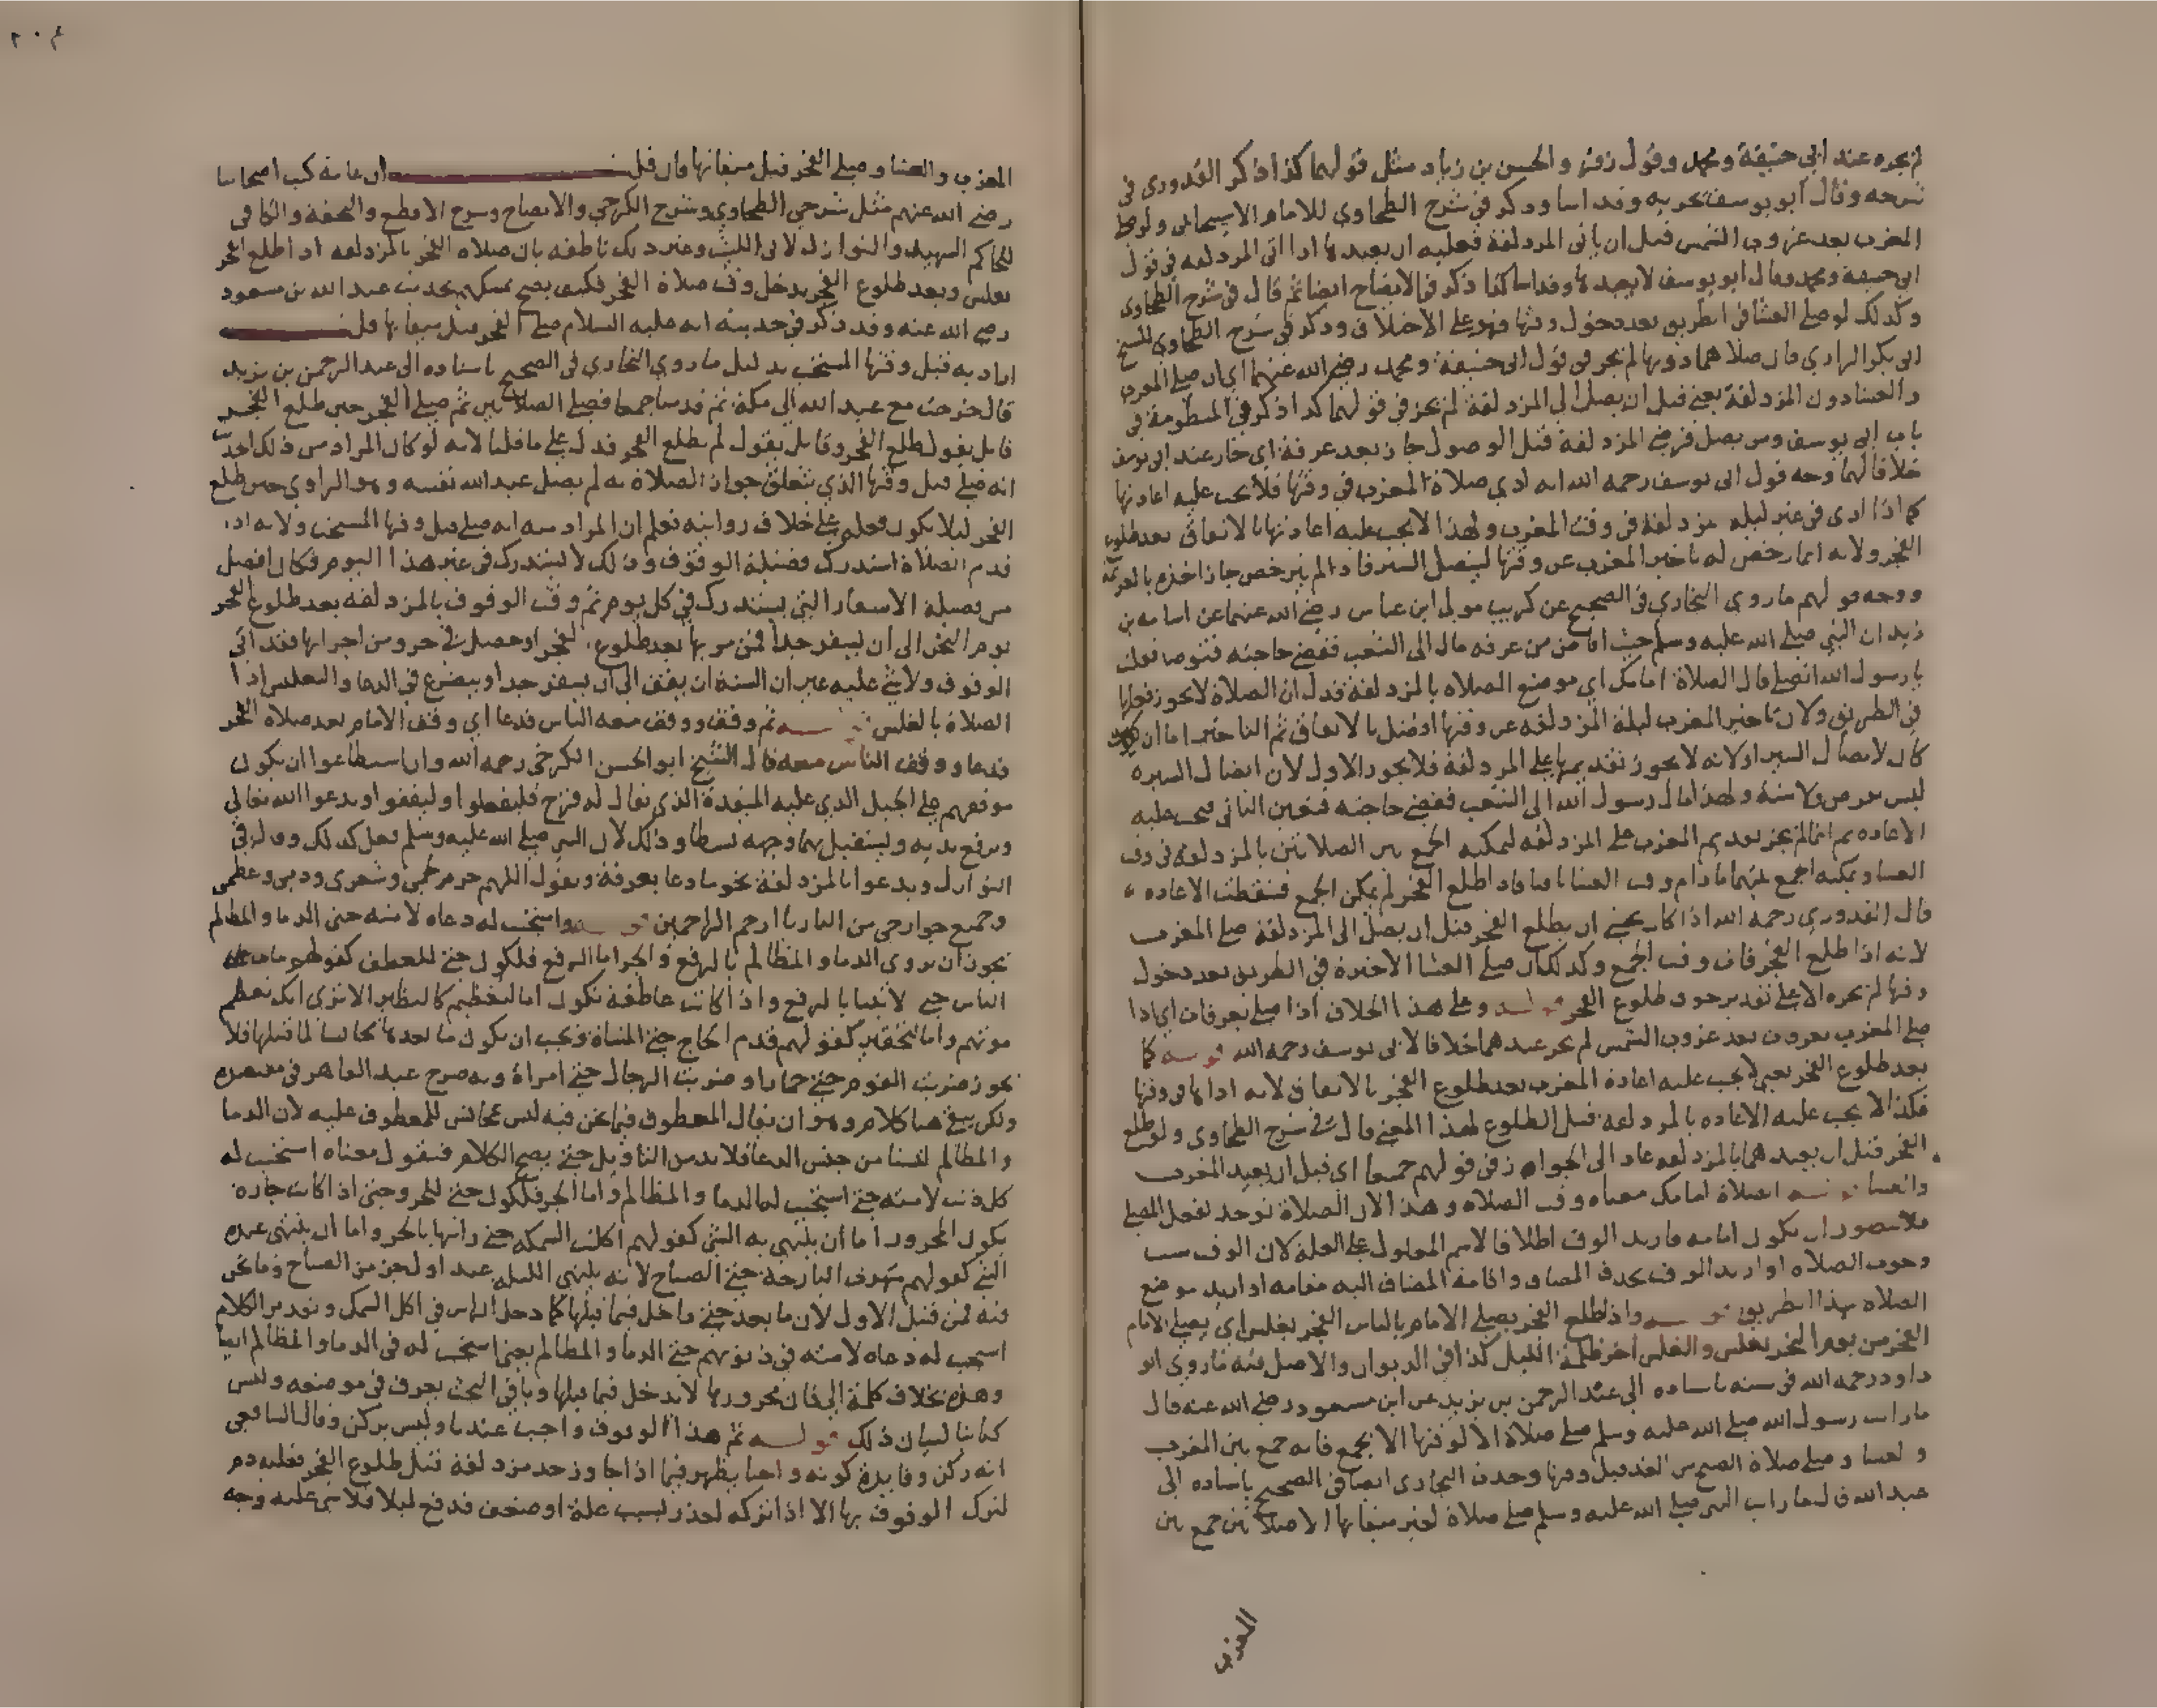 لم يجزه عند ابي حنيفة ومحمد وقول زفر والحسن بن زياد مثل قولهما كذا ذكر القدوري في
شرحه وقال ابو يوسف تجزيه وقد اسا وذكر في شرح الطحاوي للامام الاسبيجابي ولو صلى
المغرب بعد غروب الشمس قبل ان ياتي المزدلفة فعليه ان يعيدها اذا اتى المزدلفه في قول
ابي حنيفة ومحمد وقال ابو يوسف لا يعيدها وقد اسا كذا ذكر في الايضاح ايضا ثم قال في شرح الطحاوي
وكذلك لو صلى العشا في الطريق بعد دخول وقتها فهو على الاختلاف وذكر في شرح الطحاوي للشيخ
ابي بكر الرازي قال صلاهما دونها لم يجز في قول ابي حنيفة ومحمد رضي الله عنهما اي ان صلى المغرب
والعشا دون المزدلفة يعني قبل ان يصل الى المزدلفة لم يجز في قولهما كذا ذكر في المنظومة في
باب ابي يوسف ومن يصل فرضي المزدلفة قبل الوصول جاز بعد عرفة اي جاز عند ابي يوسف
خلافا لهما وجه قول ابي يوسف رحمه الله انه ادى صلاة المغرب في وقتها فلا يجب عليه اعادتها
كما اذا ادى في غير ليلة مزدلفة في وقت المغرب ولهذا لا يجب عليه اعادتها بالاتفاق بعد طلوع
الفجر ولانه انما رخص له تاخير المغرب عن وقتها ليتصل السير فاذا لم يترخص جاز اخذه بالعزيمة
ووجه قولهم ما روى البخاري في الصحيح عن كريب مولى ابن عباس رضي الله عنهما عن اسامة بن
زيد ان النبي صلى الله عليه وسلم حيث افاض من عرفه مال الى الشعب فقضى حاجته فتوضا فقلت
يا رسول الله اتصلي قال الصلاة امامك اي موضع الصلاه بالمزدلفة فدل ان الصلاة لا يجوز فعلها
في الطريق ولان تاخير المغرب ليلة المزدلفه عن وقتها افضل بالاتفاق ثم التاخير اما ان يكون
كان لاتصال السير او لانه لا يجوز تقديمها على المزدلفة فلا يجوز الاول لان اتصال السير
ليس بفرض ولا سنة ولهذا مال رسول الله الى الشعب فقضى حاجته فتعين الثاني فيجب عليه
الاعاده ثم انما لم يجز تقديم المغرب على المزدلفه ليمكنه الجمع بين الصلاتين بالمزدلفة في وقت
العشا ويمكنه الجمع بينهما ما دام وقت العشا باقيا فاذا طلع الفجر لم يمكن الجمع فسقطت الاعاده
قال القدوري رحمه الله اذا كان يخشى ان يطلع الفجر قبل ان يصل الى المزدلفة صلى المغرب
لانه اذا طلع الفجر فات وقت الجمع وكذلك ان صلى العشا الاخيرة في الطريق بعد دخول
وقتها لم يجزه الا على تقدير خوف طلوع الفجر قوله وعلى هذا الخلاف اذا صلى بعرفات اي اذا
صلى المغرب بعرفات بعد غروب الشمس لم يجز عندهما خلافا لابي يوسف رحمه الله قوله كما
بعد طلوع الفجر يعني لا يجب عليه اعادة المغرب بعد طلوع الفجر بالاتفاق لانه اداها في وقتها
فكذا لا يجب عليه الاعاده بالمزدلفه قبل الطلوع لهذا المعنى قال في شرح الطحاوي ولو طلع
الفجر قبل ان يعيدهما بالمزدلفه عاد الى الجواز في قولهم جميعا اي قبل ان يعيد المغرب
والعشا قوله الصلاة امامك معناه وقت الصلاه وهذا لان الصلاة توجد بفعل المصلي
فلا يتصور ان تكون امامه فاريد الوقت اطلاقا لاسم المعلول على العلة لان الوقت سبب
وجوب الصلاه او اريد الوقت بحذف المضاف واقامة المضاف اليه مقامه او اريد موضع
الصلاه بهذا الطريق قوله واذا طلع الفجر يصلي الامام بالناس الفجر بغلس اي يصلي الامام
الفجر من يوم النحر بغلس والغلس اخر ظلمة الليل كذا في الديوان والاصل فيه ما روى ابو
داود رحمه الله في سننه باسناده الى عبد الرحمن بن يزيد عن ابن مسعود رضي الله عنه قال
ما رايت رسول الله صلى الله عليه وسلم صلى صلاة الا لوقتها الا بجمع فانه جمع بين المغرب
والعشا وصلى صلاة الصبح من الغد قبل وقتها وحدث البخاري ايضا في الصحيح باسناده الى
عبد الله قال ما رايت النبي صلى الله عليه وسلم صلى صلاة لغير ميقاتها الا صلاتين جمع بين
المغرب
٢٠٤
المغرب والعشا وصلى الفجر قبل ميقاتها فان قلت ان عامة كتب اصحابنا
رضي الله عنهم مثل شرحي الطحاوي وشرح الكرخي والايضاح وشرح الاقطع والتحفة والكافي
للحاكم الشهيد والنوازل لابي الليث وغير ذلك ناطقه بان صلاه الفجر بالمزدلفه اذا طلع الفجر
بغلس وبعد طلوع الفجر يدخل وقت صلاة الفجر فكيف يصح تمسكهم بحديث عبد الله بن مسعود
رضي الله عنه وقد ذكر في حديثه انه عليه السلام صلى الفجر قبل ميقاتها قلت
اراد به قبل وقتها المستحب بدليل ما روى البخاري في الصحيح باسناده الى عبد الرحمن بن يزيد
قال خرجت مع عبد الله الى مكة ثم قدمنا جمعا فصلى الصلاتين ثم صلى الفجر حين طلع الفجر
قايل يقول طلع الفجر وقايل يقول لم يطلع الفجر فدل على ما قلنا لانه لو كان المراد من ذلك الحديث
انه صلى قبل وقتها الذي يتعلق جواز الصلاة به لم يصل عبد الله نفسه وهو الراوي حين طلع
الفجر ليلا يكون فعله على خلاف روايته فعلم ان المراد منه انه صلى قبل وقتها المستحب ولانه اذا
قدم الصلاة استدرك فضيلة الوقوف وذلك لا يستدرك في غير هذا اليوم فكان افضل
من فضيلة الاسفار التي يستدرك في كل يوم ثم وقت الوقوف بالمزدلفه بعد طلوع الفجر
يوم النحر الى ان يسفر جدا فمن مر بها بعد طلوع الفجر او حصل في جزو من اجزايها فقد اتى
الوقوف ولا شي عليه غير ان السنة ان يقف الى ان يسفر جدا ويتضرع في الدعا والتغليس اذا
الصلاة بالغلس قوله ثم وقف ووقف معه الناس فدعا اي وقف الامام بعد صلاة الفجر
فدعا ووقف الناس معه قال الشيخ ابو الحسن الكرخي رحمه الله وان استطاعوا ان يكون
موقفهم على الجبل الذي عليه الميقدة الذي يقال له قزح فليفعلوا وليقفوا ويدعوا الله تعالى
ويرفع يديه ويستقبل بهما وجهه بسطا وذلك لان النبي صلى الله عليه وسلم فعل كذلك وقال في
النوازل ويدعوا بالمزدلفة بنحو ما دعا بعرفة ويقول اللهم حرم لحمي وشعري ودمي وعظمي
وجميع جوارحي من النار يا ارحم الراحمين قوله واستجيب له دعاه لامته حتى الدما والمظالم
يجوز ان يروى الدما والمظالم بالرفع والجر اما الرفع فلكون حتى للعطف كقولهم مات
الناس حتى الانبيا بالرفع واذا كانت عاطفة تكون اما لتعظيم كالنظير الا ترى انك تعظم
موتهم واما لتحقير كقولهم قدم الحاج حتى المشاة ويجب ان يكون ما بعدها مجانسا لما قبلها فلا
يجوز ضربت القوم حتى حمارا وضربت الرجال حتى امراة وبه صرح عبد القاهر في مقتصده
ولكن يبقى هنا كلام وهو ان يقال المعطوف فيما نحن فيه ليس بمجانس للمعطوف عليه لان الدما
والمظالم ليسا من جنس الدعا فلا بد من التاويل حتى يصح الكلام فنقول معناه استجيب له
كل ذنب لامته حتى استجيب له الدما والمظالم واما الجر فلكون حتى للجر وحتى اذا كانت جاره
يكون المجرور اما ان ينتهي به الشي كقولهم اكلت السمكه حتى راسها بالجر واما ان ينتهي عنده
الشي كقولهم سهرت البارحة حتى الصباح لانه ينتهي الليله عند اول جزء من الصباح وما نحن
فيه فمن قبيل الاول لان ما بعد حتى داخل فيما قبلها كما دخل الراس في اكل السمك وتقدير الكلام
استجيب له دعاه لامته في ذنوبهم حتى الدما والمظالم يعني استجيب له في الدما والمظالم ايضا
وهذه بخلاف كلمة الى فان مجرورها لا يدخل فيما قبلها وباقي البحث يعرف في موضعه وليس
كتابنا لبيان ذلك قوله ثم هذا الوقوف واجب عندنا وليس بركن وقال الشافعي
انه ركن وفايدة كونه واجبا يظهر فيما اذا جاوز حد مزدلفة قبل طلوع الفجر فعليه دم
لترك الوقوف بها الا اذا تركه لعذر بسبب علة او ضعف فدفع ليلا فلا شي عليه وجه